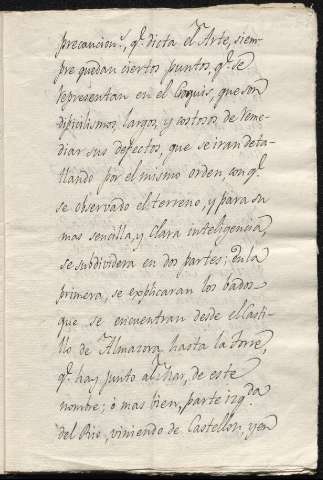 precaucion.s, q.e dicta el Arte, siem-
pre quedan ciertos puntos, q.e se
representan en el Croquis, que son
dificilismos, largos, y costosos, de reme-
diar sus defectos, que se iran deta-
llando por el mismo orden con q.e
se observado el terreno, y para su
mas sencilla, y clara inteligencia,
se subdividera en dos partes; en la
primera, se explicaran los bados
que se encuentran desde el Casti-
llo de Almazora, hasta la Torre,
q.e hay junto al Mar, de este
nombre; ò mas bien, parte izq.da
del Rio, viniendo de Castellon, y en